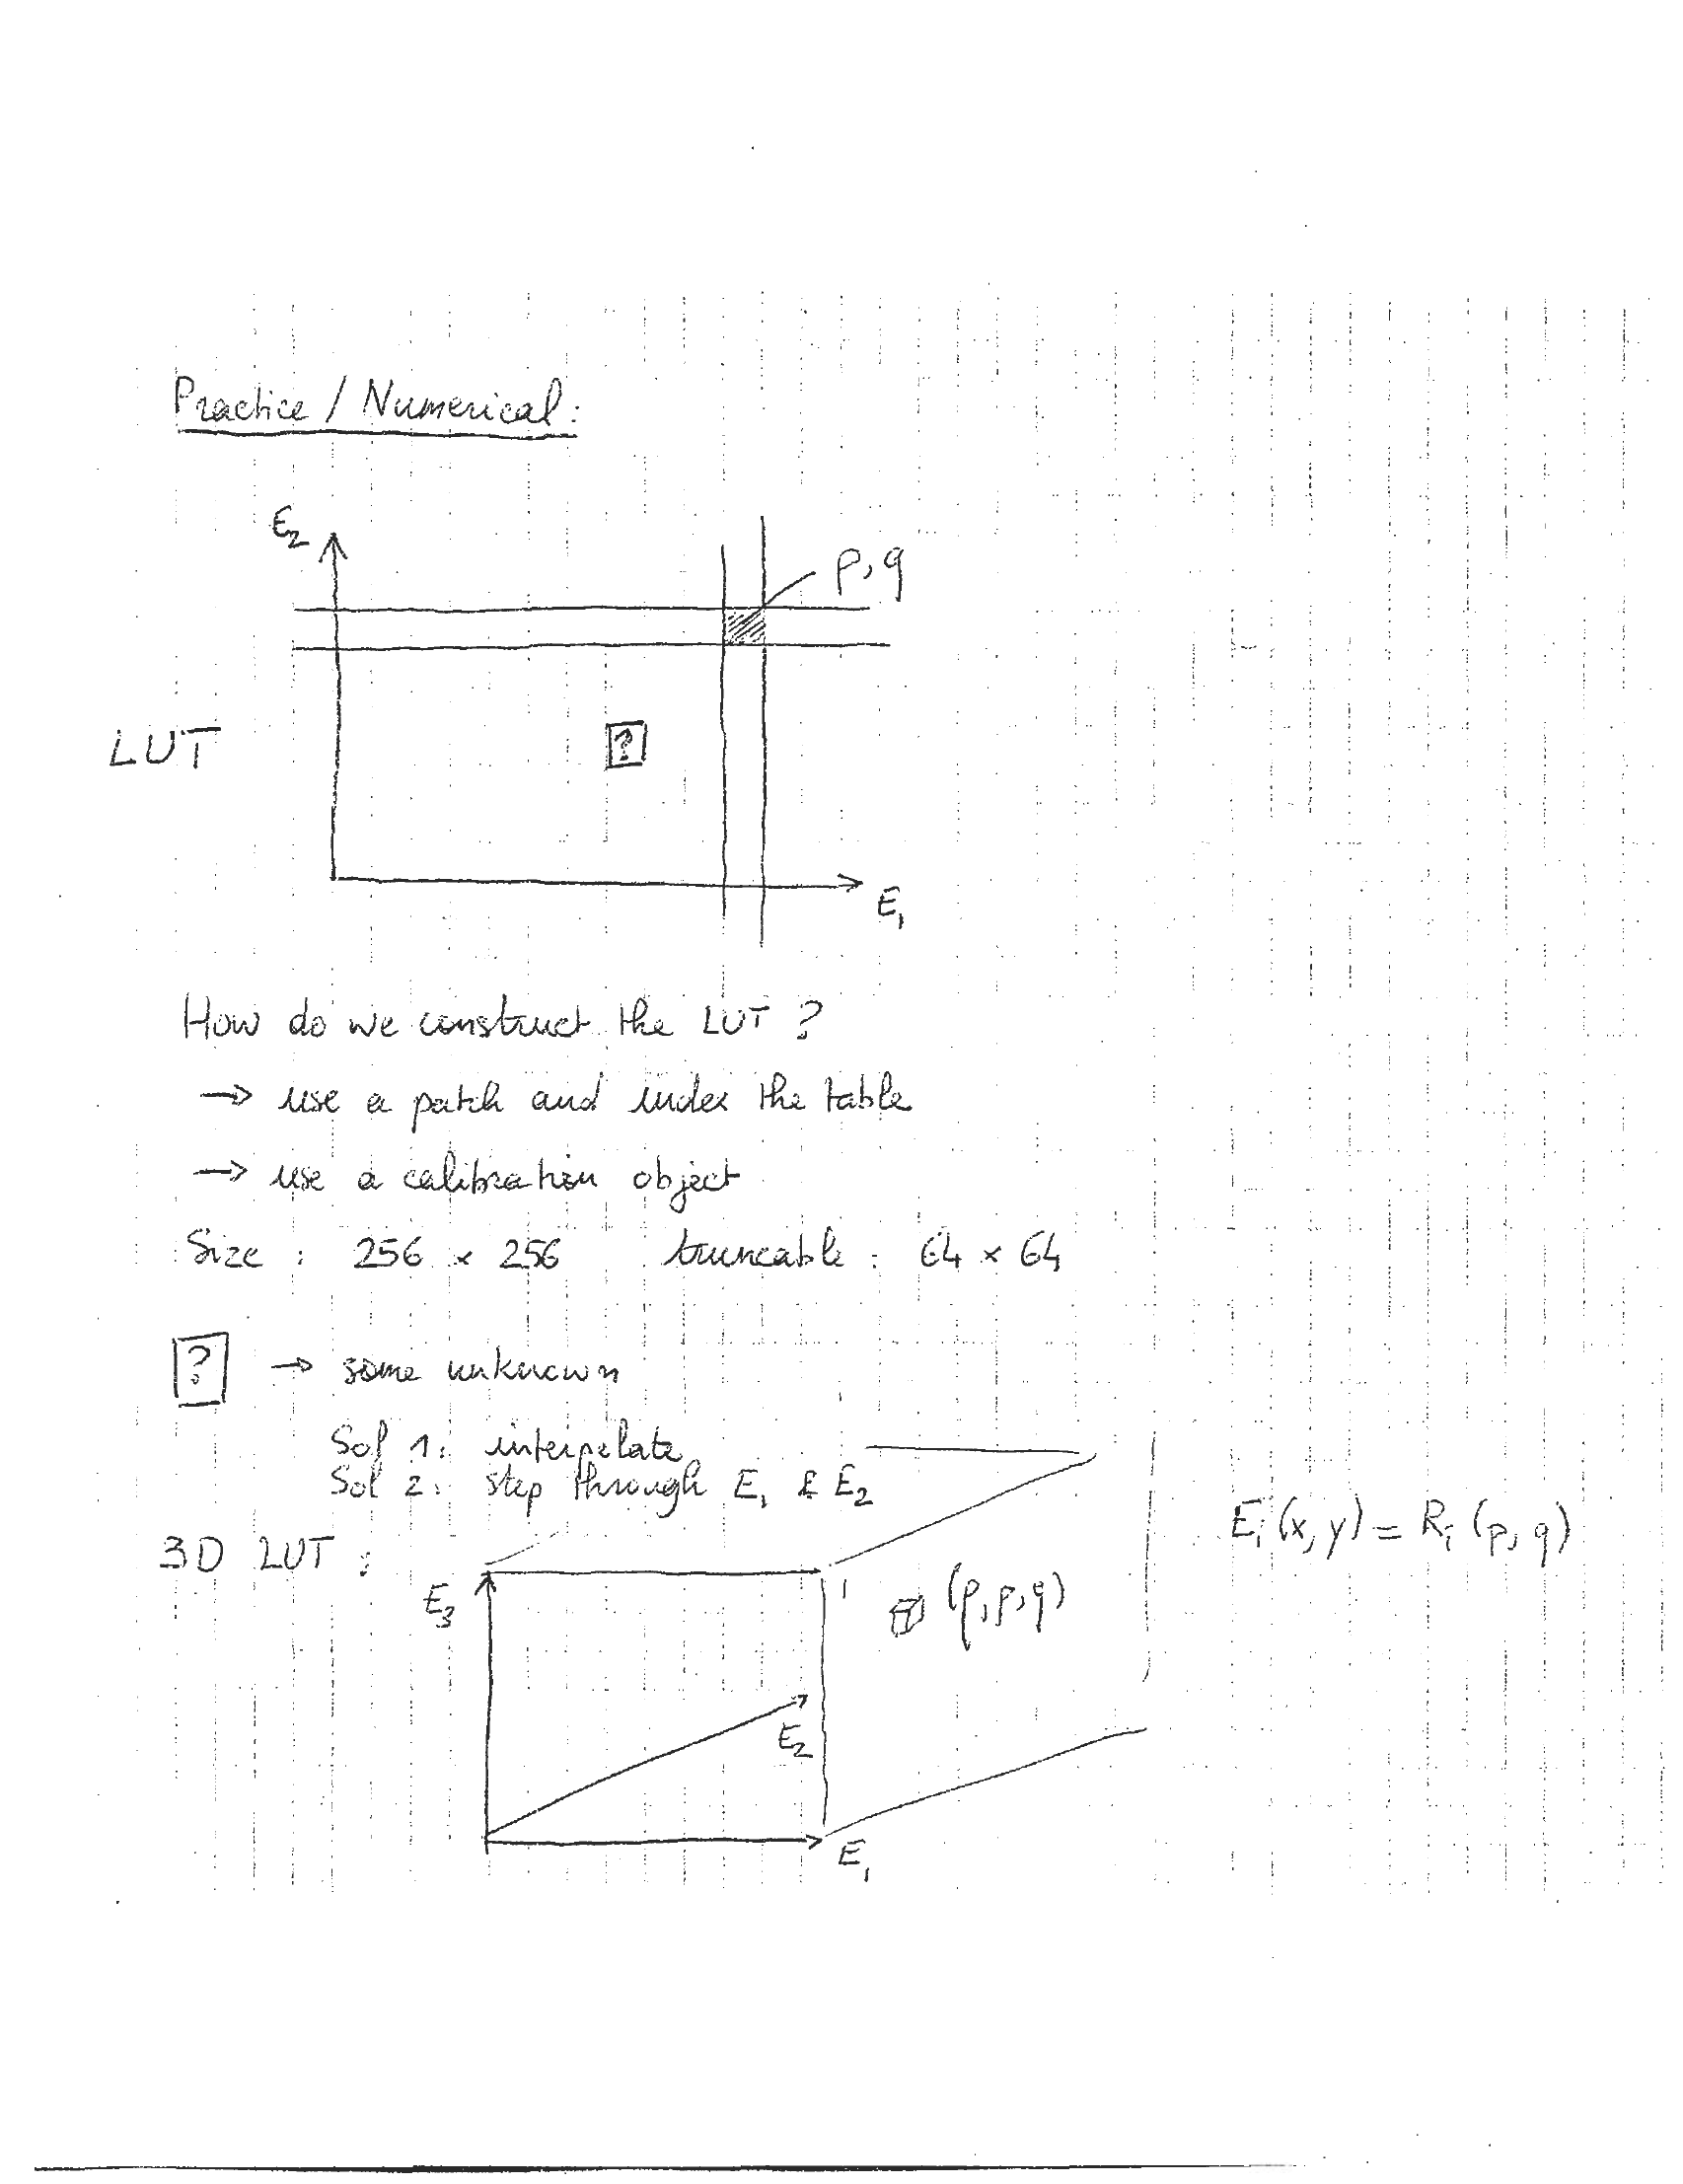 Practice / Numerical:
E₂
p, q
LUT
?
E₁
How do we construct the LUT ?
→ use a patch and index the table
→ use a calibration object
Size : 256 × 256 truncable : 64 × 64
? → some unknown
Sol 1: interpolate
Sol 2: step through E₁ & E₂
E_i(x, y) = R_i(p, q)
3D LUT :
E₃
(ρ, p, q)
E₂
E₁